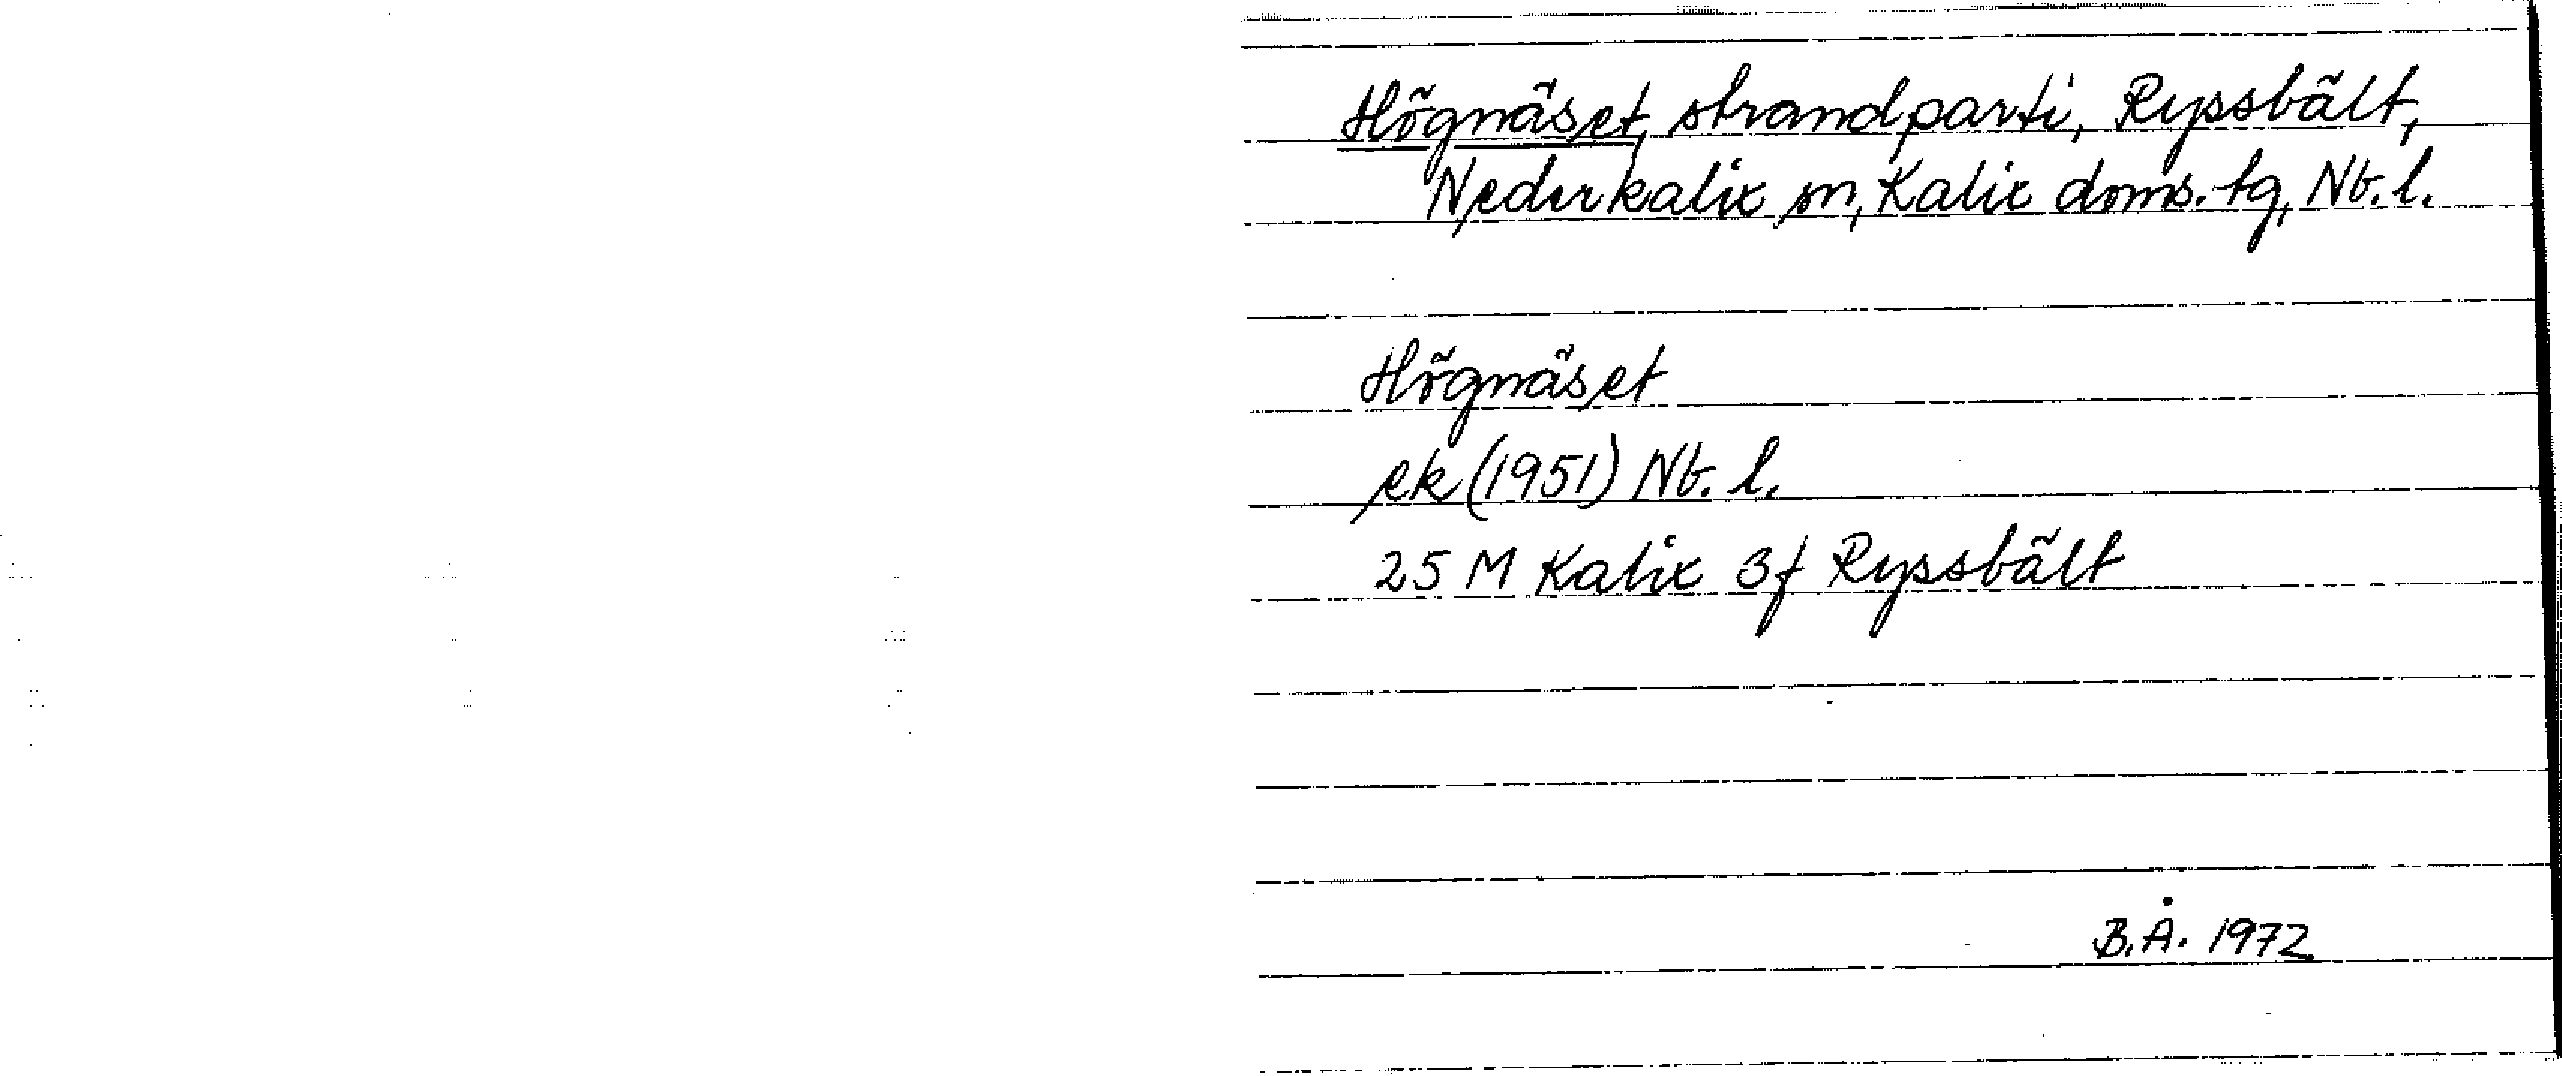 Högnäset, strandparti, Ryssbält,
Nederkalix sn, Kalix doms. tg, Nb. l.
Högnäset
ek (1951) Nb. l.
25 M Kalix 3f Ryssbält
B.Å. 1972